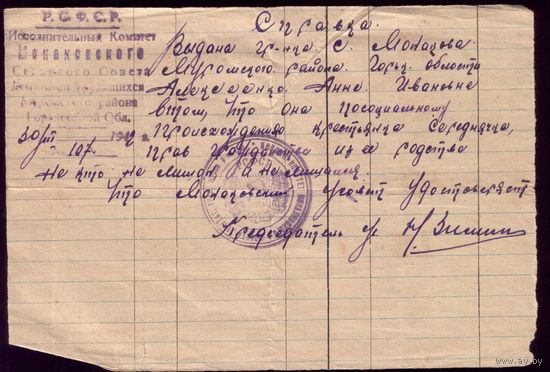 Р.С.Ф.С.Р.
Исполнительный Комитет
Мокаковского
Сельского Совета
Депутатов трудящихся
Муромского района
Горьковской Обл.
30/III 194 г.
107.
Справка
Выдана гр-нке с. Мокакова
Муромского района. Горьк. области
Алексеенко Анне Ивановне
втом, что она посоциальному
происхождению крестьянка середнячка,
прав гражданства из ее родства
не кто не лишон, и не лишался
что Мокаковский удостоверяет
Председатель с/с Н. Зимин
www.ay.by